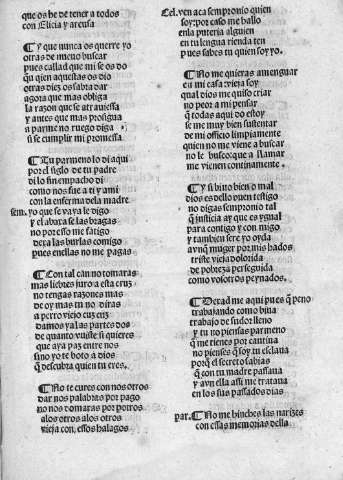 que os he de tener a todos
con Elicia y areusa
¶ Y que nunca os querre yo
otras de nueuo buscar
pues callad que mi se os do
qui en aquestas os dio
otras diez os sabra dar
agora que mas obliga
la razon que se atrauiessa
y antes que mas prosigua
a parmeno ruego diga
si se cumplir mi promessa.
¶ Tu parmeno lo di aqui
por el siglo de tu padre
di lo sin empacho di
como nos fue a ti y a mi
con la enferma dela madre
sem. yo que se vaya le digo
y el abaxa se las bragas
no por esso me fatigo
dexa las burlas comigo
pues enellas no me pagas
¶ Con tal can no tomaras
mas liebres juro a esta cruz
no tengas razones mas
de oy mas tu no diras
a perro viejo cuz cuz
damos ya las partes dos
de quanto vuiste si quieres
que aya paz entre nos
sino yo te boto a dios
q̃ descubra quien tu eres.
¶ No te cures con nos otros
dar nos palabras por pago
no nos tomaras por potros
alos otros alos otros
vieja con, essos halagos
Cel. ven aca sempronio quien
soy: por caso me hallo
en la puteria alguien
en tu lengua rienda ten
pues sabes tu quien soy yo.
¶ No me quieras amenguar
en mi casa vieja soy
qual dios me quiso criar
no peor a mi pensar
q̃ todas aqui do estoy
se me muy bien sustentar
de mi officio limpiamente
quien no me viene a buscar
no le busco: que a llamar
me vienen continamente.
¶ Y si biuo bien o mal
dios es dello buen testigo
no digas sempronio tal
q̃ justicia ay que es ygual
para contigo y con migo
y tambien sere yo oyda
avnq̃ muger por mis hados
triste vieja dolorida
de pobreza perseguida
como vosotros peynados.
¶ Dexad me aqui pues q̃ peno
trabajando como biua
trabajo de sudor lleno
y tu no piensas parmeno
q̃ me tienes por catiua
no pienses q̃ soy tu esclaua
porq̃ el secreto sabias
q̃ con tu madre passaua
y avn ella assi me trataua
en los sus passados dias
par. ¶ No me hinches las narizes
con essas memorias della